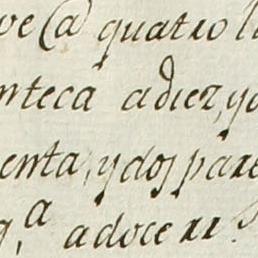 ve @ quatro l
nteca adiez, y
enta, y dos pare
q,ª adoce rr.s